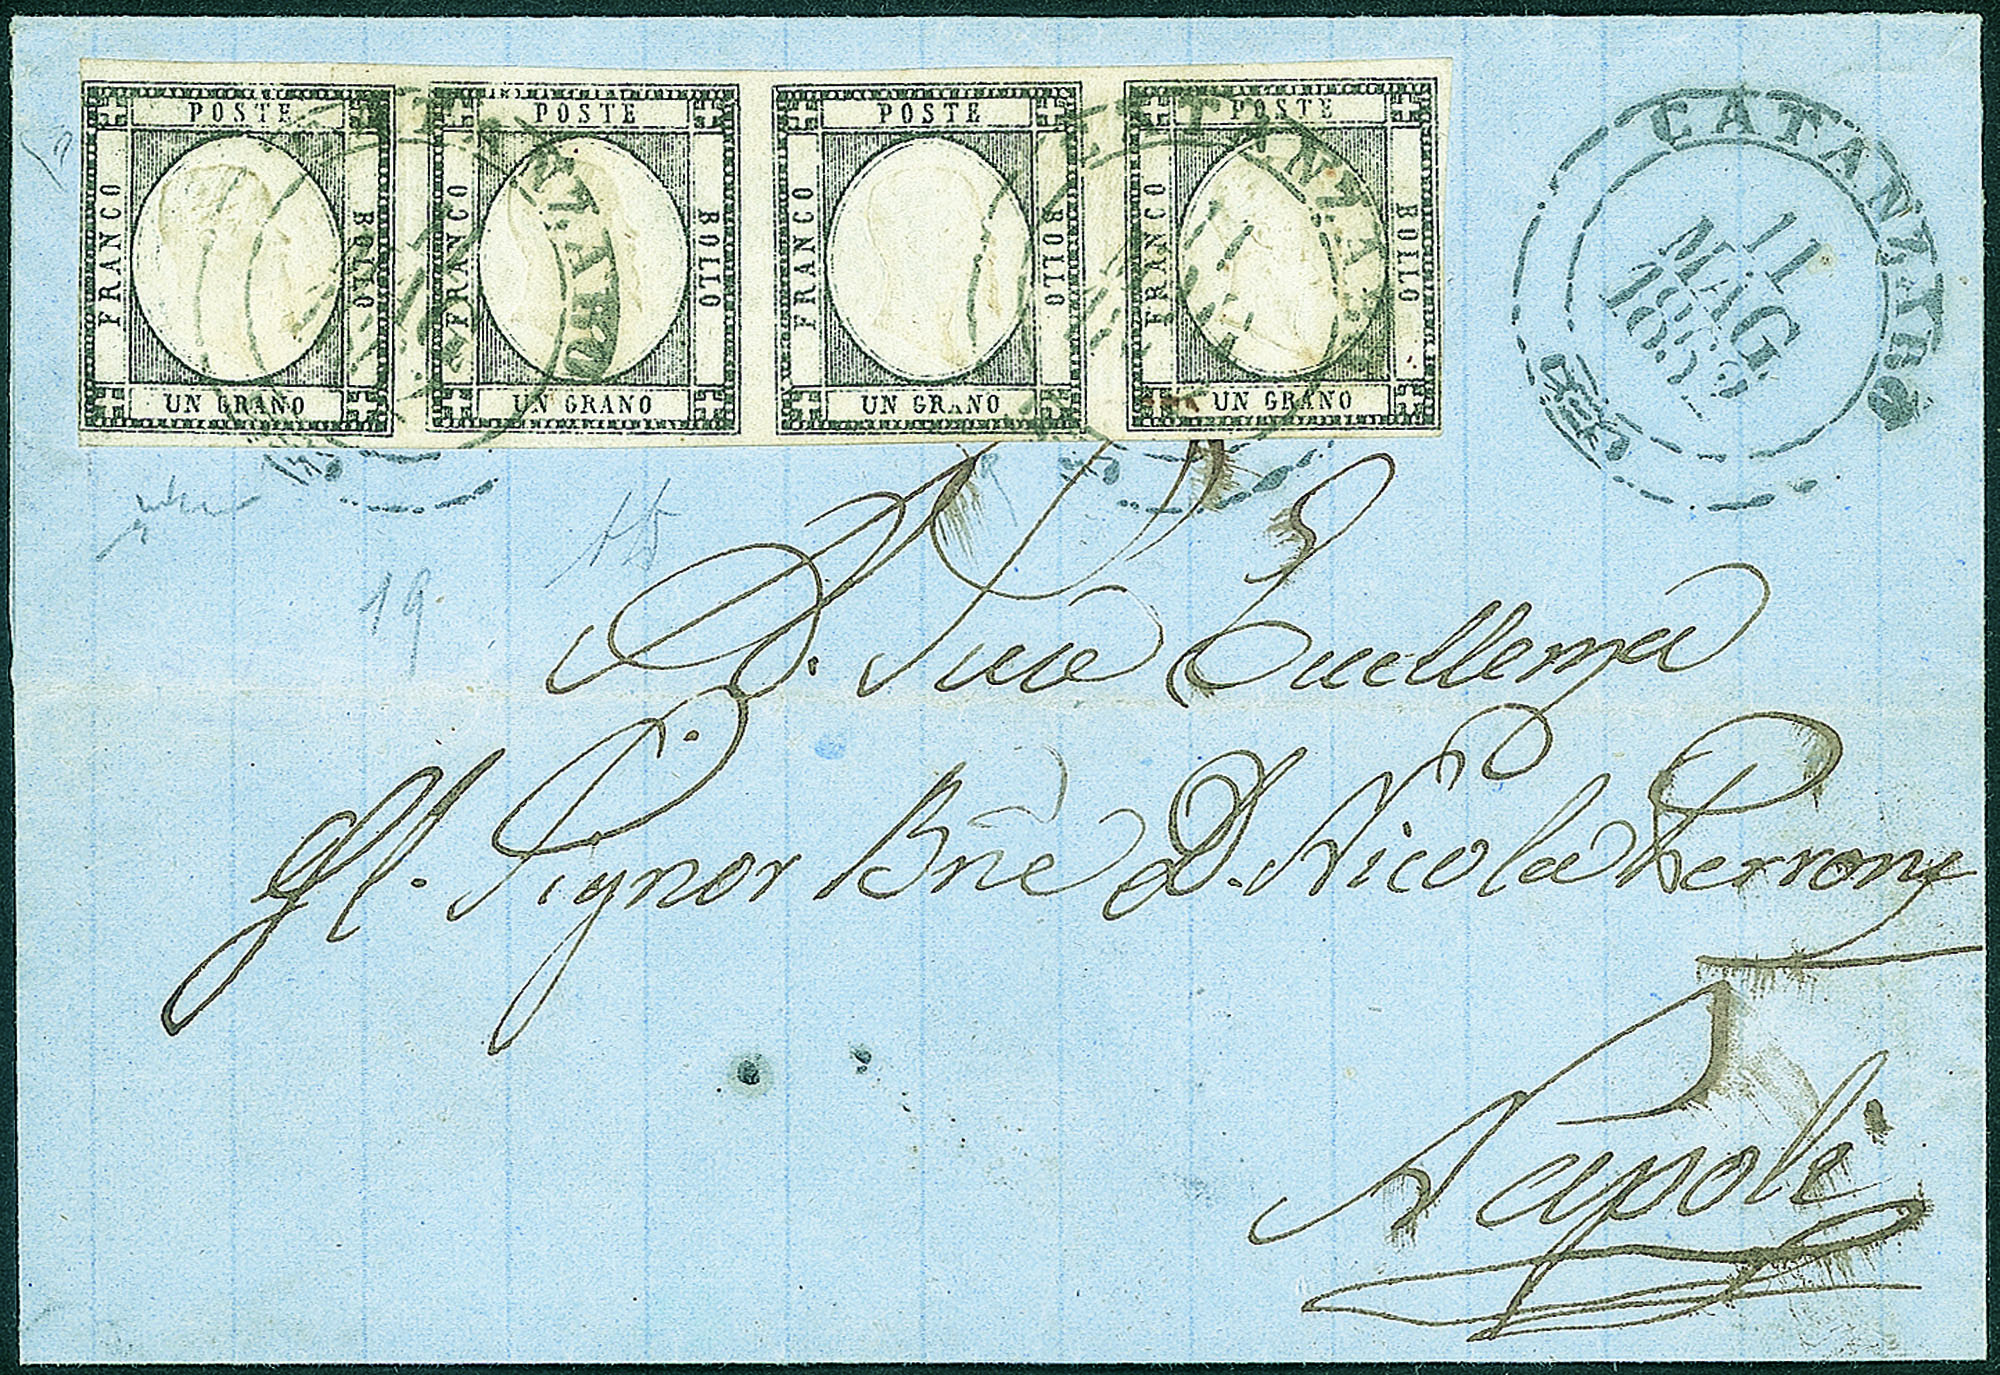 POSTE POSTE POSTE POSTE
FRANCO BOLLO FRANCO BOLLO FRANCO BOLLO FRANCO BOLLO
UN GRANO UN GRANO UN GRANO UN GRANO
CATANZARO
CATANZARO
CATANZARO
11
MAG
19
A. Sua Eccellenza
Il Signor Bne D. Nicola Perrone
Napoli